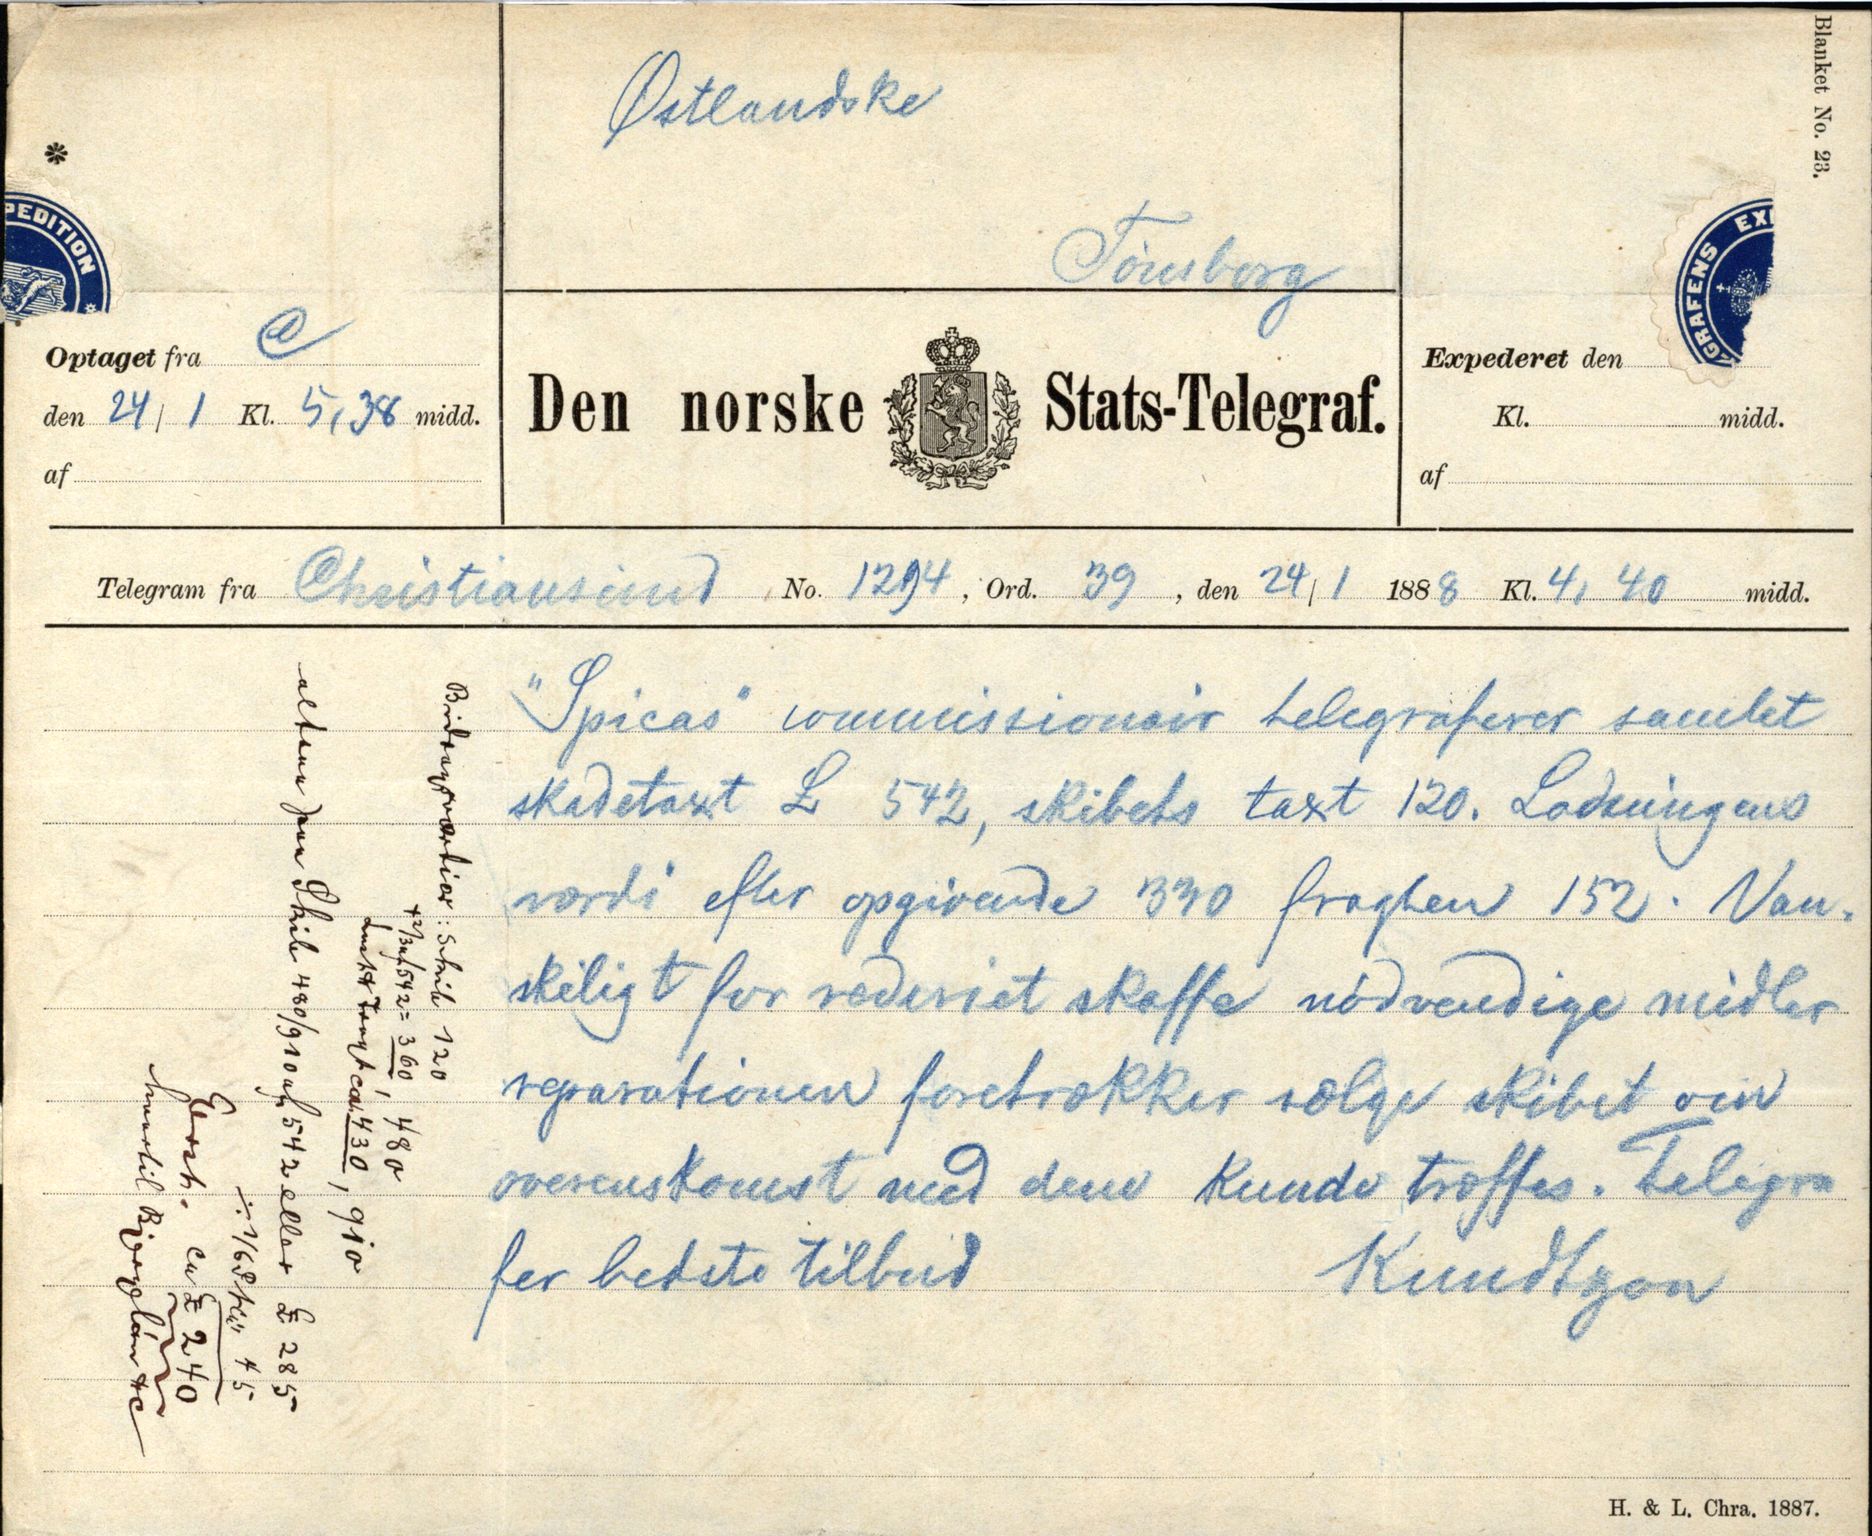 Blanket No. 23.
*
Østlandske
Tönsberg
PEDITION *
GRAFENS EX
Optaget fra C
den 24/1 Kl. 5,38 midd.
af
Den norske Stats-Telegraf.
Expederet den
Kl. midd.
af
Telegram fra Christiansund No. 1294, Ord. 39, den 24/1 1888 Kl. 4,40 midd.
"Spicas" commissionair telegraferer samlet
skadetaxt £ 542, skibets taxt 120. Ladningens
værdi efter opgivende 330 fragten 152. Van-
skeligt for rederiet skaffe nödvendige midler
reparationen foretrækker sælge skibet om
overenskomst med dem kunde træffes. Telegra
fer bedste tilbud Kundtzon
Bidragsværdier: Skib 120
+ 2/3 af 542 = 360, 480
Last & Fragt ca. 430, 910
altsaa paa Skib 480/910 af 542 eller £ 285
÷ 1/6 45
Erst. ca £ 240
H. & L. Chra. 1887.